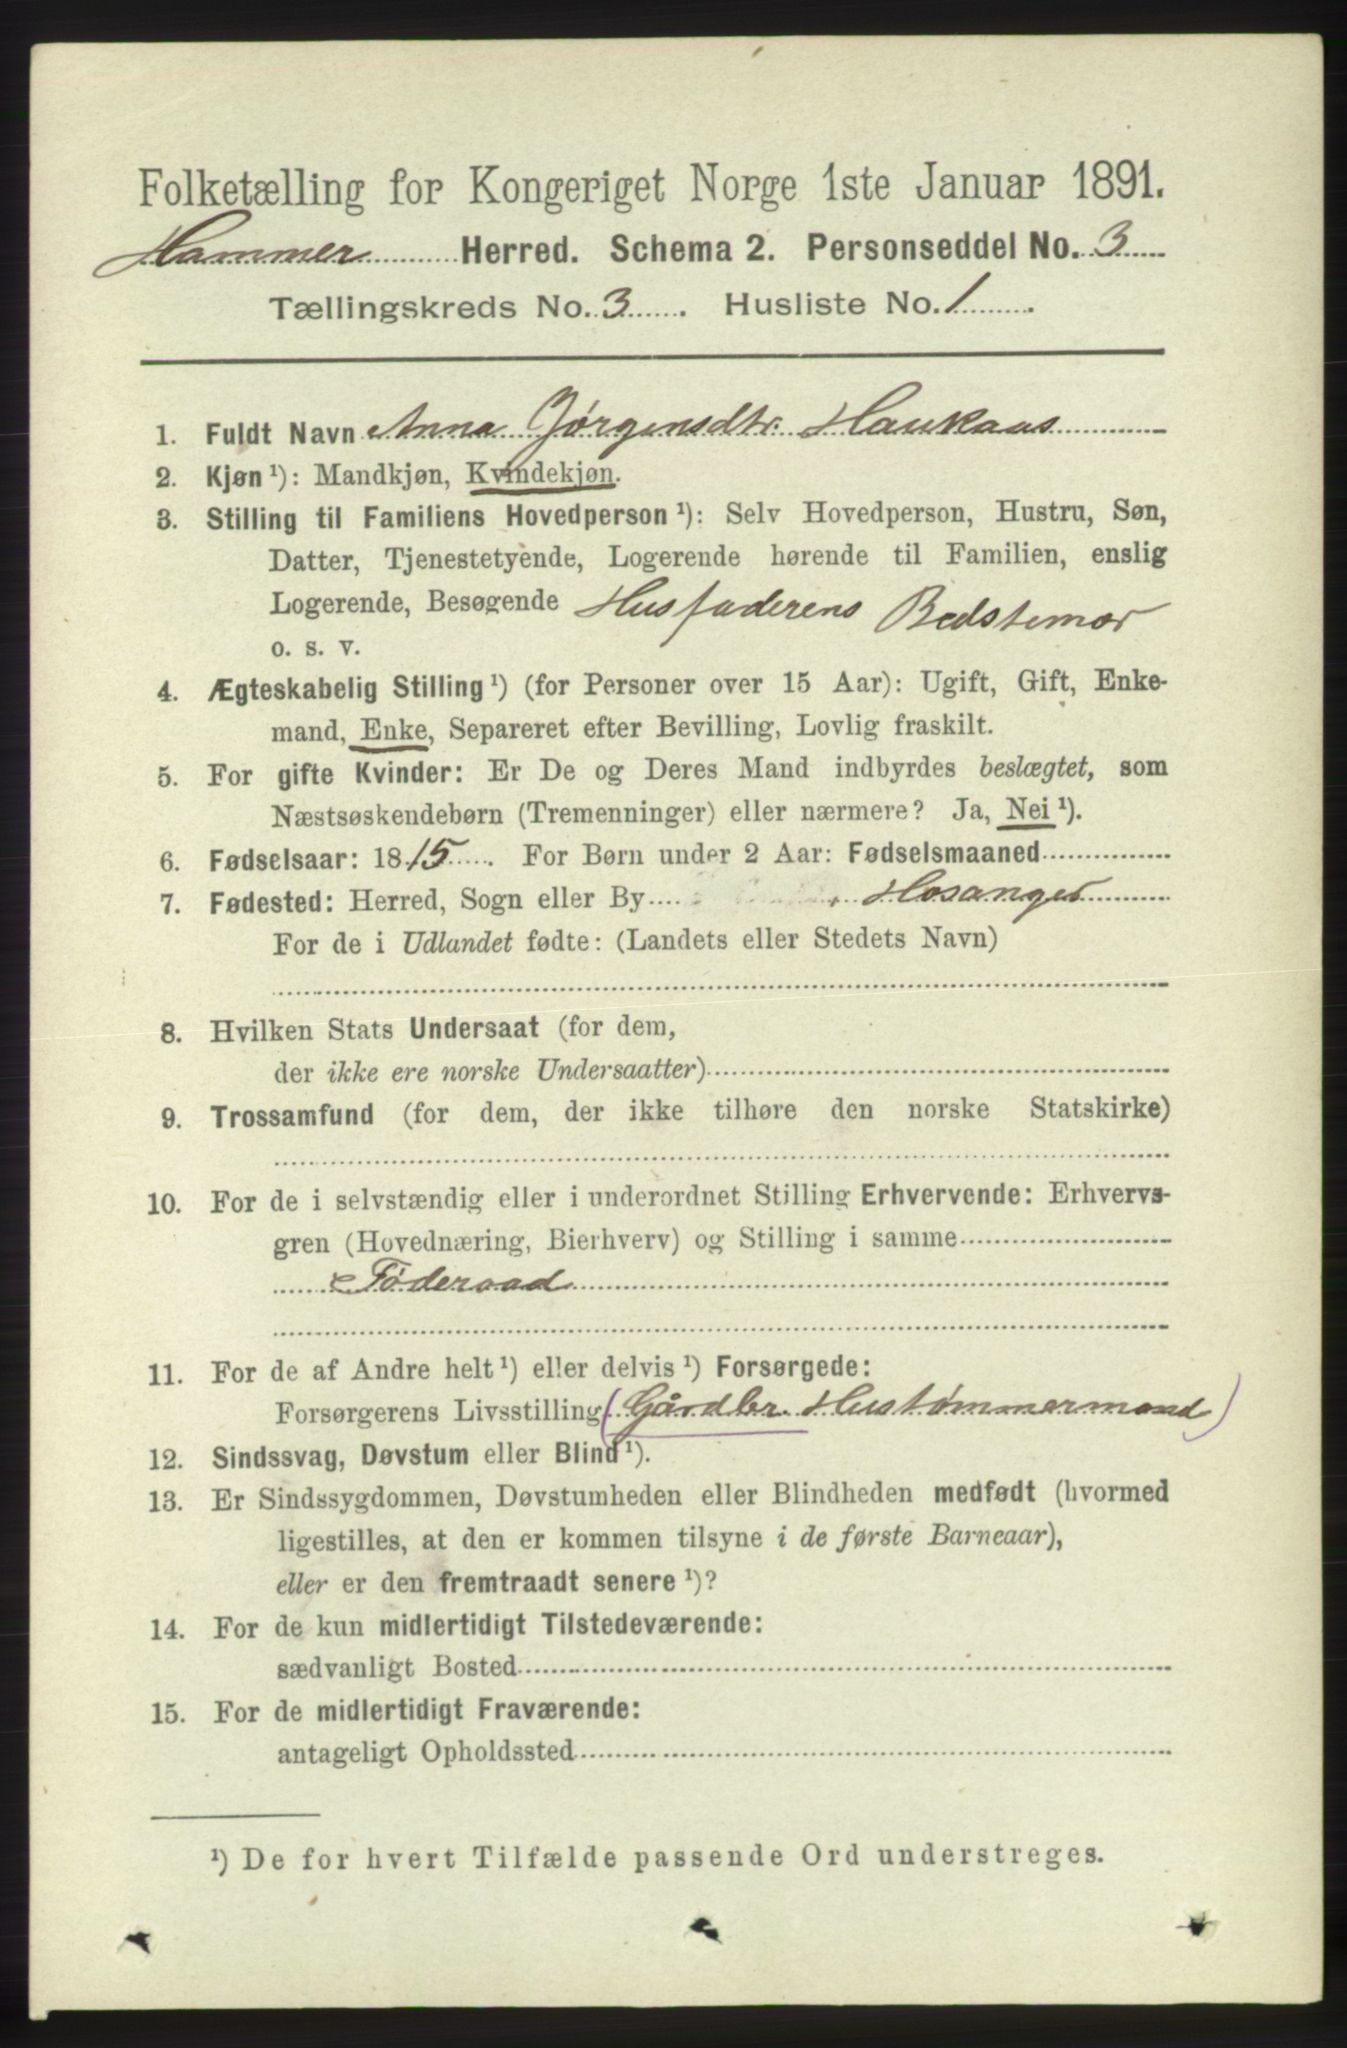 Folketælling for Kongeriget Norge 1ste Januar 1891.
Hammer Herred. Schema 2. Personseddel No. 3
Tællingskreds No. 3. Husliste No. 1.
1. Fuldt Navn Anna Jørgensdtr. Haukaas
2. Kjøn ¹): Mandkjøn, Kvindekjøn.
3. Stilling til Familiens Hovedperson ¹): Selv Hovedperson, Hustru, Søn,
Datter, Tjenestetyende, Logerende hørende til Familien, enslig
Logerende, Besøgende Husfaderens Bedstemor
o. s. v.
4. Ægteskabelig Stilling ¹) (for Personer over 15 Aar): Ugift, Gift, Enke-
mand, Enke, Separeret efter Bevilling, Lovlig fraskilt.
5. For gifte Kvinder: Er De og Deres Mand indbyrdes beslægtet, som
Næstsøskendebørn (Tremenninger) eller nærmere? Ja, Nei ¹).
6. Fødselsaar: 1815. For Børn under 2 Aar: Fødselsmaaned
7. Fødested: Herred, Sogn eller By Hosanger
For de i Udlandet fødte: (Landets eller Stedets Navn)
8. Hvilken Stats Undersaat (for dem,
der ikke ere norske Undersaatter)
9. Trossamfund (for dem, der ikke tilhøre den norske Statskirke)
10. For de i selvstændig eller i underordnet Stilling Erhvervende: Erhvervs-
gren (Hovednæring, Bierhverv) og Stilling i samme
Føderaad
11. For de af Andre helt ¹) eller delvis ¹) Forsørgede:
Forsørgerens Livsstilling (Gårdbr. Hustømmermand)
12. Sindssvag, Døvstum eller Blind ¹).
13. Er Sindssygdommen, Døvstumheden eller Blindheden medfødt (hvormed
ligestilles, at den er kommen tilsyne i de første Barneaar),
eller er den fremtraadt senere ¹)?
14. For de kun midlertidigt Tilstedeværende:
sædvanligt Bosted
15. For de midlertidigt Fraværende:
antageligt Opholdssted
¹) De for hvert Tilfælde passende Ord understreges.